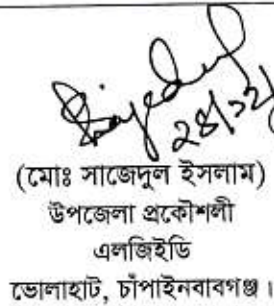 (মোঃ সাজেদুল ইসলাম)
উপজেলা প্রকৌশলী
এলজিইডি
ভোলাহাট, চাঁপাইনবাবগঞ্জ।